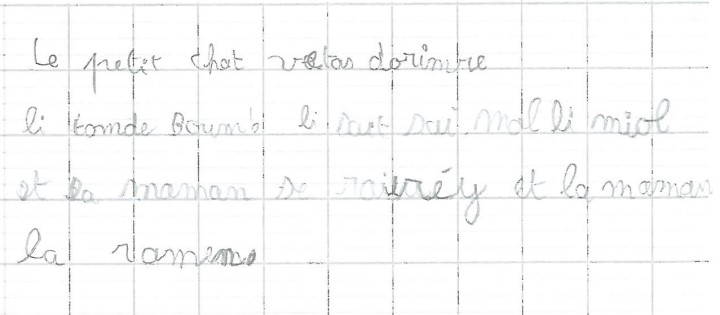 Le petit chat vetas dorimire
li tomde Boum! li sait mal li miol
et la maman se raivréy et la maman
la ramene